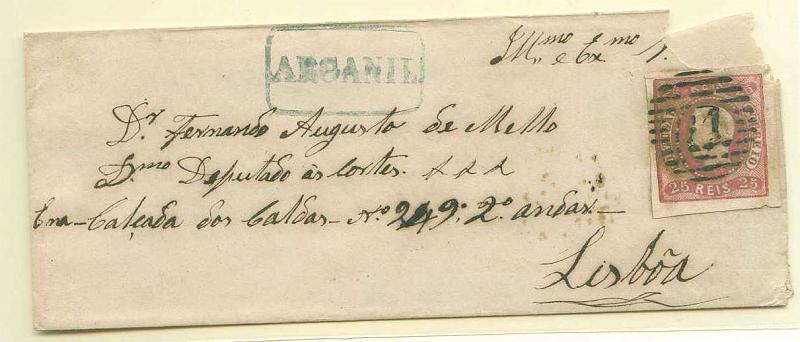 ARGANIL
Ill.mo e Ex.mo S.
Dr. Fernando Augusto de Mello
D.mo Deputado ás Cortes. &&&
Calçada dos Caldas - Nº 249. 2º andar -
Lisbôa
25 REIS 25